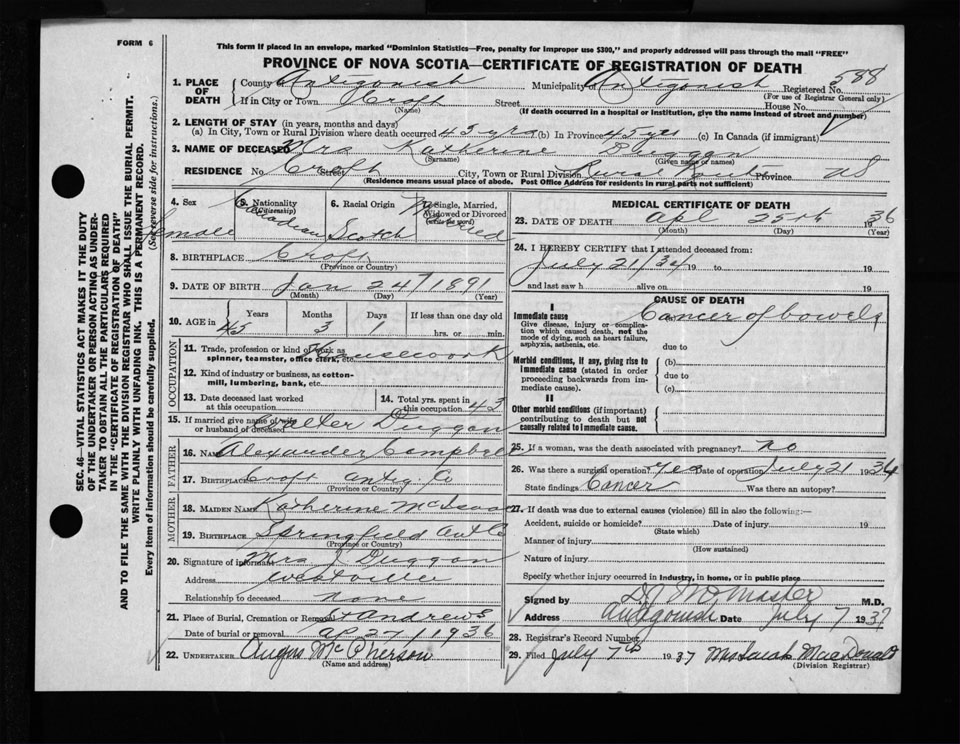 FORM 6
This form if placed in an envelope, marked "Dominion Statistics—Free, penalty for improper use $300," and properly addressed will pass through the mail "FREE"
PROVINCE OF NOVA SCOTIA—CERTIFICATE OF REGISTRATION OF DEATH
588
1. PLACE OF DEATH County of Antigonish Municipality Antigonish Registered No.
(For use of Registrar General only)
If in City or Town Croft Street House No.
(Name) (If death occurred in a hospital or institution, give the name instead of street and number)
2. LENGTH OF STAY (in years, months and days)
(a) In City, Town or Rural Division where death occurred 45 yrs (b) In Province 45 yrs (c) In Canada (if immigrant)
3. NAME OF DECEASED Mrs Katherine Duggan
(Surname) (Given name or names)
RESIDENCE No. Croft Street City, Town or Rural Division Rural Route Province NS
(Residence means usual place of abode. Post Office Address for residents in rural parts not sufficient)
4. Sex Female
5. Nationality (Citizenship) Canadian
6. Racial Origin Scotch
Single, Married, Widowed or Divorced Married
8. BIRTHPLACE Croft
(Province or Country)
9. DATE OF BIRTH Jan 24 1891
(Month) (Day) (Year)
10. AGE in Years Months Days If less than one day old
45 3 1 hrs. or min.
OCCUPATION
11. Trade, profession or kind of work as spinner, teamster, office clerk, etc. Housework
12. Kind of industry or business, as cotton-mill, lumbering, bank, etc.
13. Date deceased last worked at this occupation
14. Total yrs. spent in this occupation 43
15. If married give name of wife or husband of deceased Walter Duggan
FATHER
16. NAME Alexander Campbell
17. BIRTHPLACE Croft Antig Co
(Province or Country)
MOTHER
18. MAIDEN NAME Katherine McIsaac
19. BIRTHPLACE Springfield
(Province or Country)
20. Signature of informant Mrs J Duggan
Address Westville
Relationship to deceased none
21. Place of Burial, Cremation or Removal St Andrews
Date of burial or removal Ap 27 1936
22. UNDERTAKER Angus McPherson
(Name and address)
MEDICAL CERTIFICATE OF DEATH
23. DATE OF DEATH Apl 25th 1936
(Month) (Day) (Year)
24. I HEREBY CERTIFY that I attended deceased from:
July 21/34 19 to 19
and last saw h alive on 19
CAUSE OF DEATH
I
Immediate cause Cancer of bowels
Give disease, injury or complication which caused death, not the mode of dying, such as heart failure, asphyxia, asthenia, etc.
due to
Morbid conditions, if any, giving rise to immediate cause (stated in order proceeding backwards from immediate cause).
(b)
due to
(c)
II
Other morbid conditions (if important) contributing to death but not causally related to immediate cause.
25. If a woman, was the death associated with pregnancy? no
26. Was there a surgical operation? Yes Date of operation July 21 1934
State findings Cancer Was there an autopsy?
27. If death was due to external causes (violence) fill in also the following:—
Accident, suicide or homicide? Date of injury 19
(State which)
Manner of injury
(How sustained)
Nature of injury
Specify whether injury occurred in industry, in home, or in public place
Signed by McMaster M.D.
Address Antigonish Date July 7 1937
28. Registrar's Record Number
29. Filed July 7th 1937 Mrs Sarah MacDonald
(Division Registrar)
SEC. 46—VITAL STATISTICS ACT MAKES IT THE DUTY
OF THE UNDERTAKER OR PERSON ACTING AS UNDER-
TAKER TO OBTAIN ALL THE PARTICULARS REQUIRED
IN THE "CERTIFICATE OF REGISTRATION OF DEATH"
AND TO FILE THE SAME WITH THE DIVISION REGISTRAR WHO SHALL ISSUE THE BURIAL PERMIT.
WRITE PLAINLY WITH UNFADING INK. THIS IS A PERMANENT RECORD.
Every item of information should be carefully supplied. (See reverse side for instructions.)